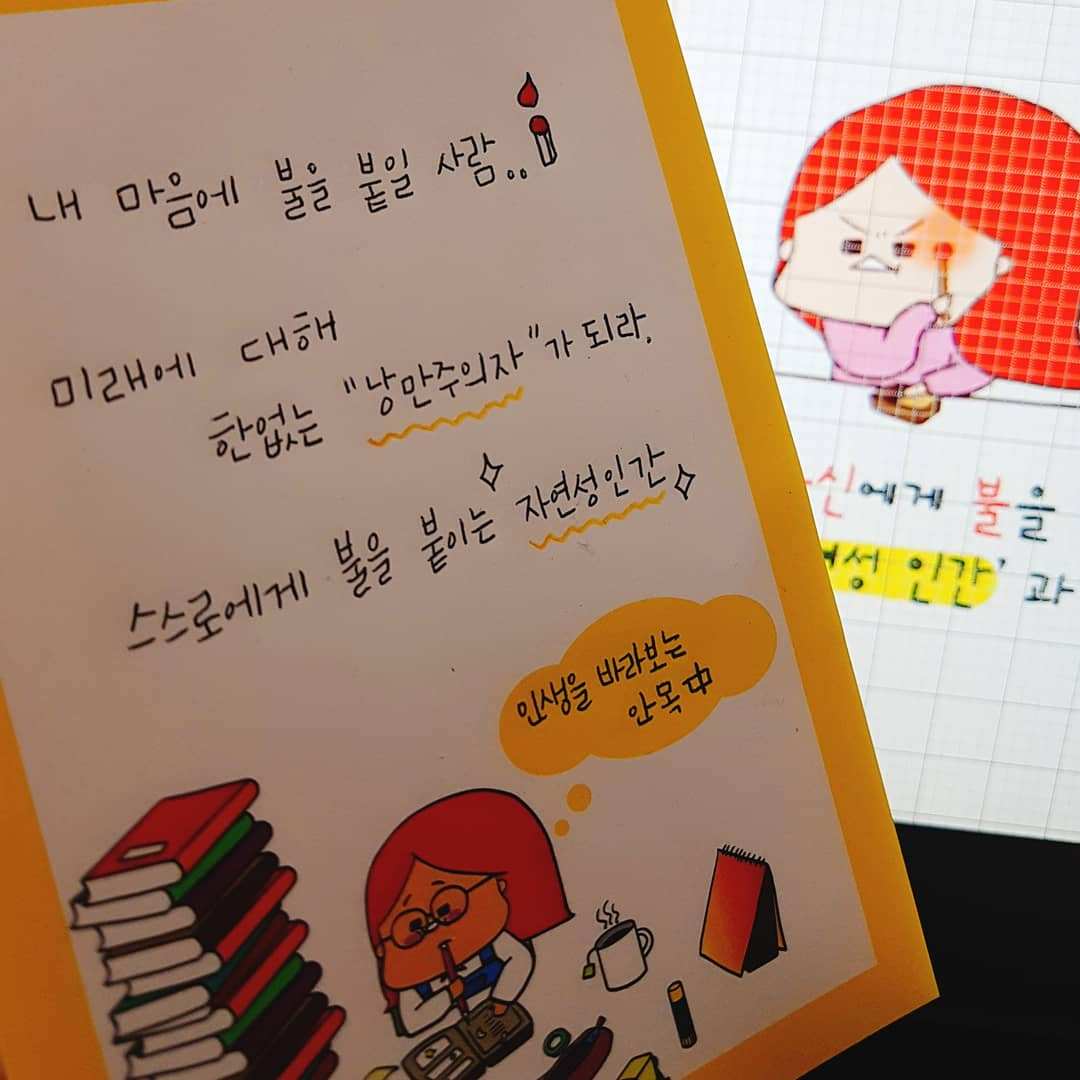 내 마음에 불을 붙일 사람..
미래에 대해
한없는 "낭만주의자"가 되라.
스스로에게 불을 붙이는 자연성인간
인생을 바라보는
안목中
신에게 불을
성 인간' 과